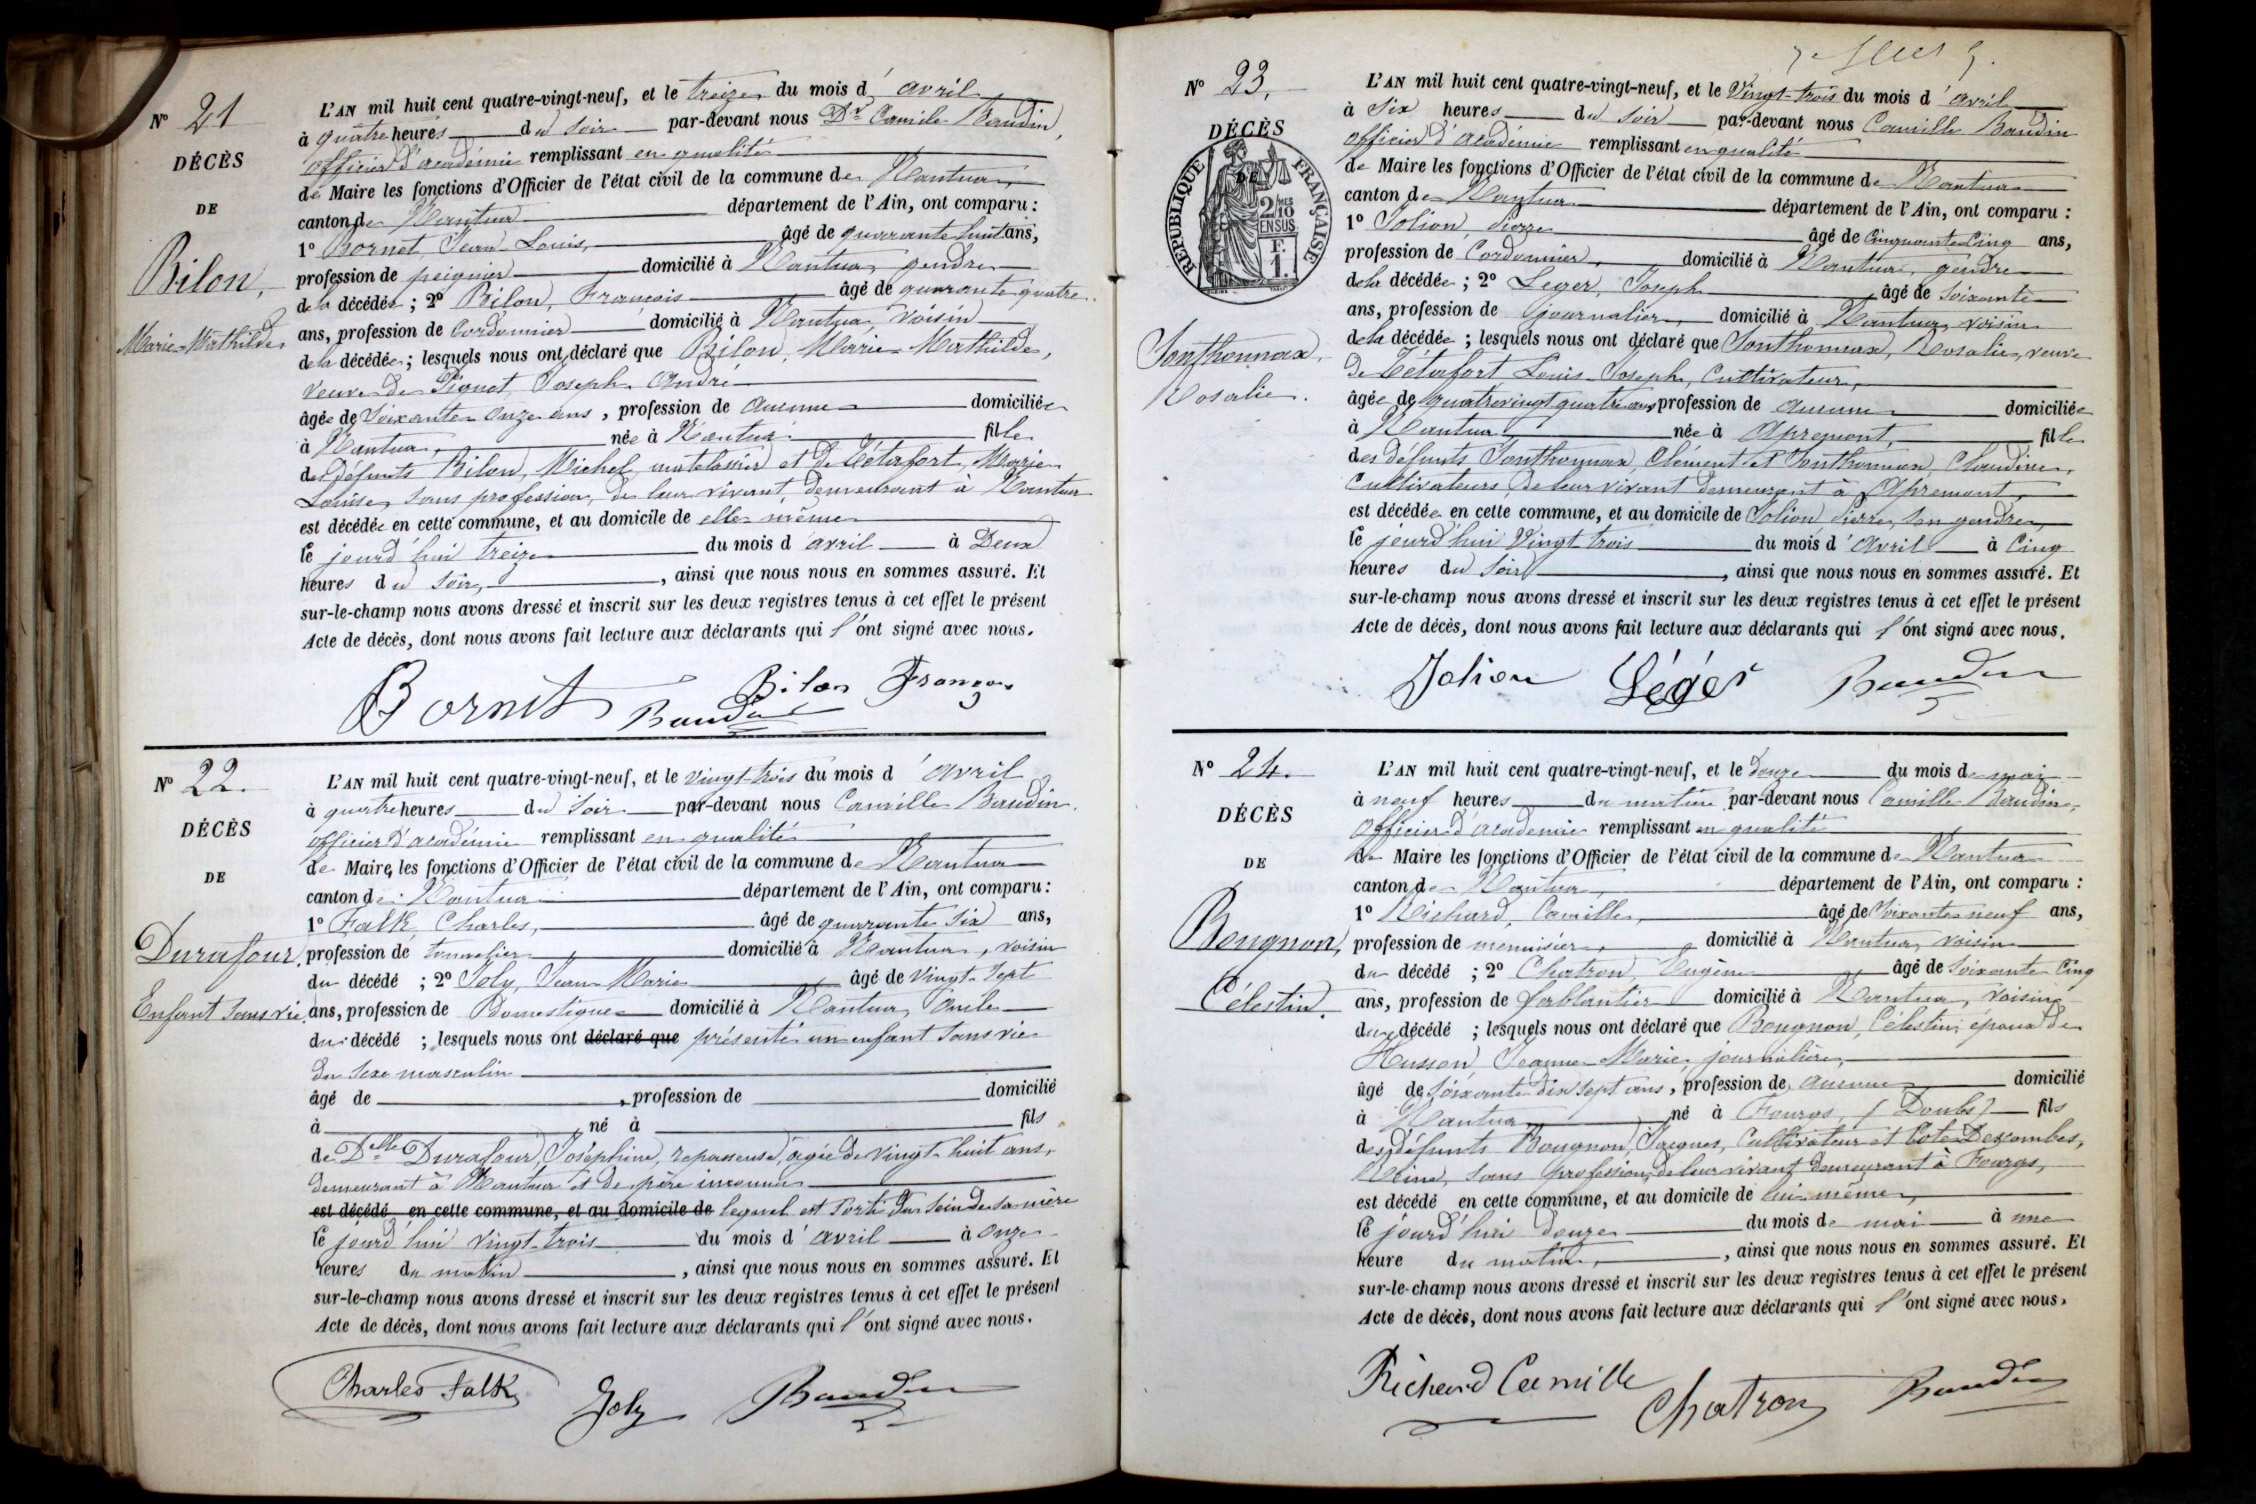 N° 21
DÉCÈS
DE
Bilon,
Marie-Mathilde
L'AN mil huit cent quatre-vingt-neuf, et le treize du mois d'avril
à quatre heures du soir par-devant nous Dr Camille Baudin,
officier d'académie remplissant en qualité
de Maire les fonctions d'Officier de l'état civil de la commune de Nantua,
canton de Nantua département de l'Ain, ont comparu :
1° Bornet, Jean-Louis, âgé de quarante huit ans,
profession de peignier domicilié à Nantua, gendre
de la décédée ; 2° Bilon, François âgé de quarante quatre
ans, profession de Cordonnier domicilié à Nantua, voisin
de la décédée ; lesquels nous ont déclaré que Bilon, Marie-Mathilde,
veuve de Piquet, Joseph André
âgée de soixante onze ans, profession de aucune domiciliée
à Nantua, née à Nantua fille
des défunts Bilon, Michel, matelassier et de Tétafort, Marie
Louise, sans profession, de leur vivant, demeurant à Nantua
est décédée en cette commune, et au domicile de elle même
le jourd'hui treize du mois d'avril à Deux
heures du soir, ainsi que nous nous en sommes assuré. Et
sur-le-champ nous avons dressé et inscrit sur les deux registres tenus à cet effet le présent
Acte de décès, dont nous avons fait lecture aux déclarants qui l'ont signé avec nous.
Bornet Baudin Bilon François
N° 22.
DÉCÈS
DE
Durafour,
Enfant sans vie.
L'AN mil huit cent quatre-vingt-neuf, et le vingt-trois du mois d'avril
à quatre heures du soir par-devant nous Camille Baudin,
officier d'académie remplissant en qualité
de Maire les fonctions d'Officier de l'état civil de la commune de Nantua
canton de Nantua département de l'Ain, ont comparu :
1° Falk, Charles, âgé de quarante six ans,
profession de tonnelier domicilié à Nantua, voisin
du décédé ; 2° Joly, Jean-Marie âgé de vingt-sept
ans, profession de Domestique domicilié à Nantua, oncle
du décédé ; lesquels nous ont déclaré que présenté un enfant sans vie
du sexe masculin
âgé de , profession de domicilié
à né à fils
de Delle Durafour, Joséphine, repasseuse, âgée de vingt-huit ans,
demeurant à Nantua et de père inconnu
est décédé en cette commune, et au domicile de lequel est sorti du sein de sa mère
le jourd'hui vingt-trois du mois d'avril à onze
heures du matin, ainsi que nous nous en sommes assuré. Et
sur-le-champ nous avons dressé et inscrit sur les deux registres tenus à cet effet le présent
Acte de décès, dont nous avons fait lecture aux déclarants qui l'ont signé avec nous.
Charles Falk Joly Baudin
N° 23.
DÉCÈS
DE
RÉPUBLIQUE FRANÇAISE
2/10mes
EN SUS
F.
1.
Sonthonnax,
Rosalie.
L'AN mil huit cent quatre-vingt-neuf, et le vingt-trois du mois d'avril
à six heures du soir par-devant nous Camille Baudin
officier d'académie remplissant en qualité
de Maire les fonctions d'Officier de l'état civil de la commune de Nantua
canton de Nantua département de l'Ain, ont comparu :
1° Jolion, Pierre âgé de cinquante cinq ans,
profession de Cordonnier, domicilié à Nantua, gendre
de la décédée ; 2° Leger, Joseph âgé de soixante
ans, profession de journalier, domicilié à Nantua, voisin
de la décédée ; lesquels nous ont déclaré que Sonthonnax, Rosalie, veuve
de Tétafort Louis-Joseph, cultivateur,
âgée de quatre vingt quatre ans, profession de aucune domiciliée
à Nantua née à Apremont, fille
des défunts Sonthonnax, Clément et Sonthonnax, Claudine,
cultivateurs, de leur vivant demeurant à Apremont,
est décédée en cette commune, et au domicile de Jolion Pierre, son gendre,
le jourd'hui vingt-trois du mois d'avril à cinq
heures du soir, ainsi que nous nous en sommes assuré. Et
sur-le-champ nous avons dressé et inscrit sur les deux registres tenus à cet effet le présent
Acte de décès, dont nous avons fait lecture aux déclarants qui l'ont signé avec nous.
Jolion Légér Baudin
N° 24.
DÉCÈS
DE
Bougnon,
Célestin.
L'AN mil huit cent quatre-vingt-neuf, et le douze du mois de mai
à neuf heures du matin par-devant nous Camille Baudin,
officier d'académie remplissant en qualité
de Maire les fonctions d'Officier de l'état civil de la commune de Nantua
canton de Nantua, département de l'Ain, ont comparu :
1° Richard, Camille, âgé de soixante neuf ans,
profession de menuisier, domicilié à Nantua, voisin
du décédé ; 2° Chatron, Eugène âgé de soixante cinq
ans, profession de ferblantier domicilié à Nantua, voisin
du décédé ; lesquels nous ont déclaré que Bougnon, Célestin, époux de
Husson, Jeanne-Marie, journalière,
âgé de soixante dix sept ans, profession de aucune domicilié
à Nantua né à Fourgs, (Doubs) fils
des défunts Bougnon, Jacques, cultivateur et Cote-Descombes,
Reine, sans profession, de leur vivant demeurant à Fourgs,
est décédé en cette commune, et au domicile de lui-même,
le jourd'hui douze du mois de mai à une
heure du matin, ainsi que nous nous en sommes assuré. Et
sur-le-champ nous avons dressé et inscrit sur les deux registres tenus à cet effet le présent
Acte de décès, dont nous avons fait lecture aux déclarants qui l'ont signé avec nous.
Richard Camille Chatron Baudin